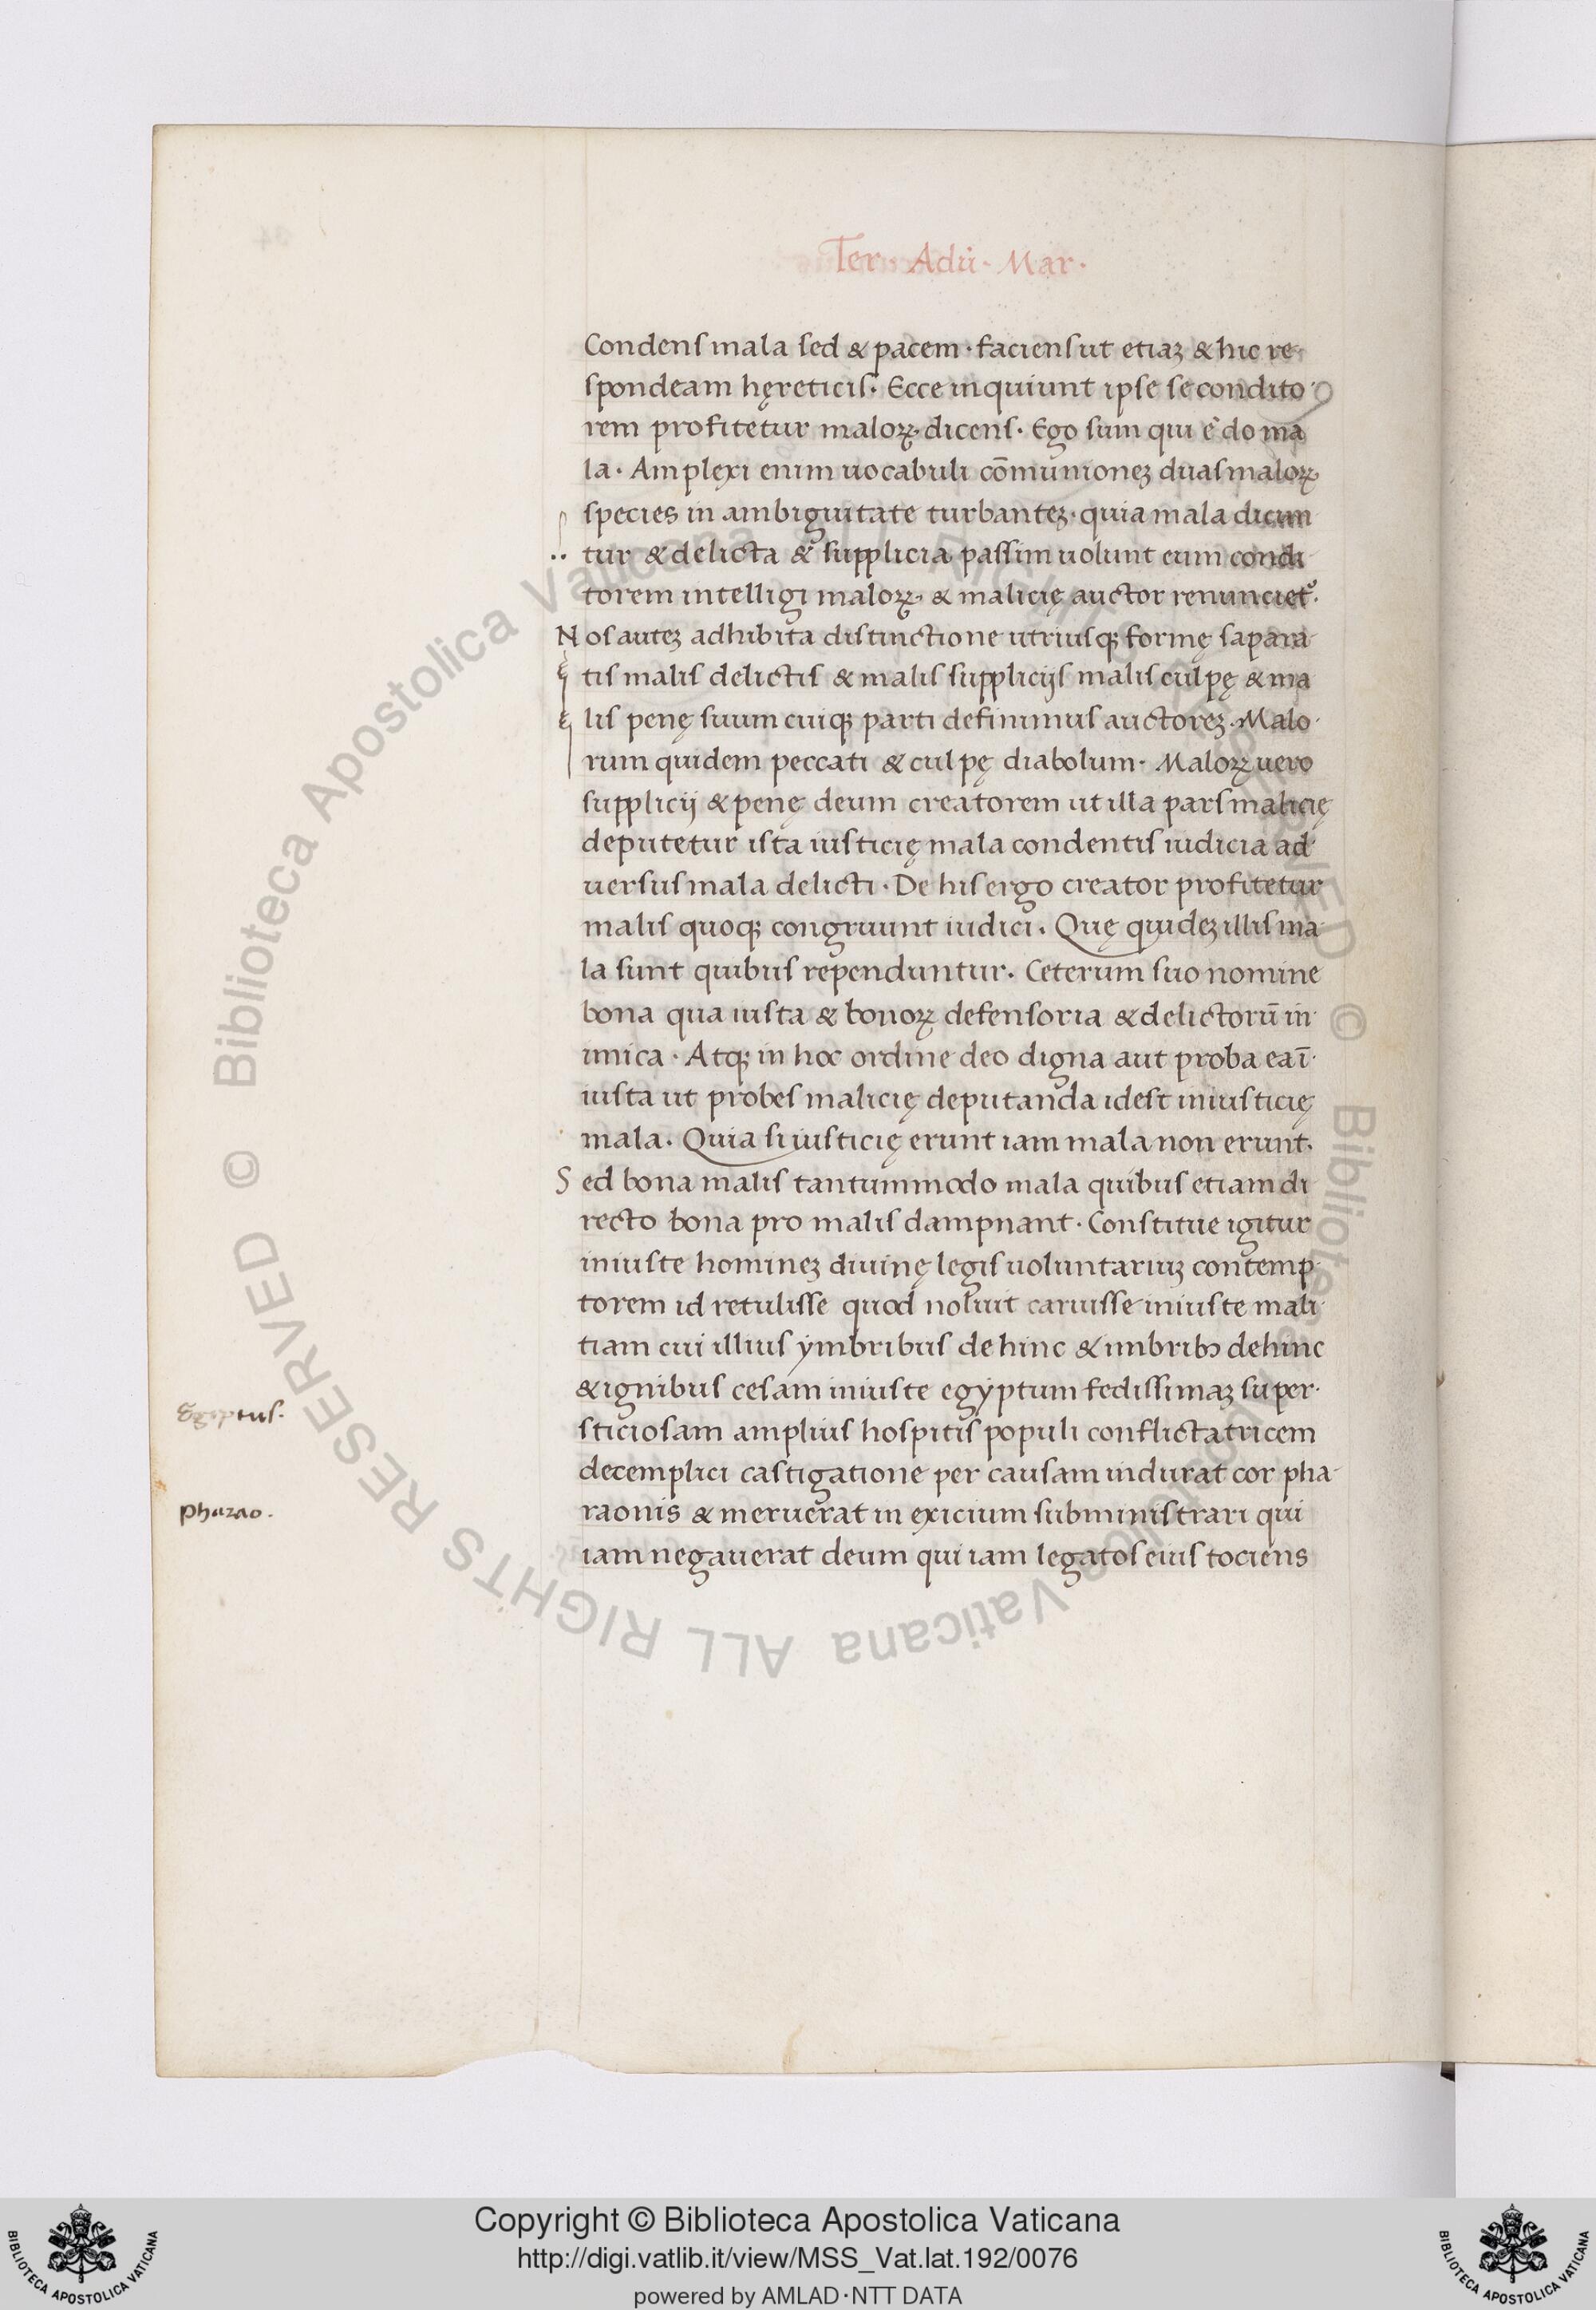 Ter. Adū. Mar.
Condens mala sed & pacem. faciens ut etiaꝫ & hic re-
spondeam hęreticis. Ecce inquiunt ipse se condito-
rem profitetur maloꝝ. dicens. Ego sum qui ẽ do ma
la. Amplexi enim uocabuli cōmunioneꝫ duas maloꝝ
species in ambiguitate turbanteꝫ. quia mala dicun
tur & delicta & supplicia passim uolunt eum condi
torem intelligi maloꝝ. & malicię auctor renuncietᷣ.
Nos auteꝫ adhibita distinctione utriusqꝫ formę sapara
tis malis delictis & malis supplicijs malis culpę & ma
lis penę suum cuiqꝫ parti definimus auctoreꝫ. Malo-
rum quidem peccati & culpę diabolum. Maloꝝ uero
supplicij & penę deum creatorem ut illa pars malicię
deputetur ista iusticię mala condentis iudicia ad-
uersus mala delicti. De his ergo creator profitetur
malis quoqꝫ congruunt iudici. Quę quideꝫ illis ma-
la sunt quibus rependuntur. Ceterum suo nomine
bona qua iusta & bonoꝝ defensoria & delictorū in-
imica. Atqꝫ in hoc ordine deo digna aut proba ea ī-
iusta ut probes malicię deputanda idest iniusticię
mala. Quia si iusticię erunt iam mala non erunt.
Sed bona malis tantummodo mala quibus etiam di
recto bona pro malis dampnant. Constitue igitur
iniuste homineꝫ diuinę legis uoluntariuꝫ contemp-
torem id retulisse quod noluit caruisse iniuste mali-
tiam cui illius ymbribus dehinc & imbribꝰ dehinc
& ignibus cesam iniuste egyptum fedissimaꝫ super-
Egiptus.
sticiosam amplius hospitis populi conflictatricem
decemplici castigatione per causam indurat cor pha-
pharao.
raonis & meruerat in exicium subministrari qui
iam negauerat deum qui iam legatos eius tociens
Copyright © Biblioteca Apostolica Vaticana
http://digi.vatlib.it/view/MSS_Vat.lat.192/0076
powered by AMLAD·NTT DATA
© Biblioteca Apostolica Vaticana ALL RIGHTS RESERVED
© Biblioteca Apostolica Vaticana ALL RIGHTS RESERVED
BIBLIOTECA APOSTOLICA VATICANA
BIBLIOTECA APOSTOLICA VATICANA